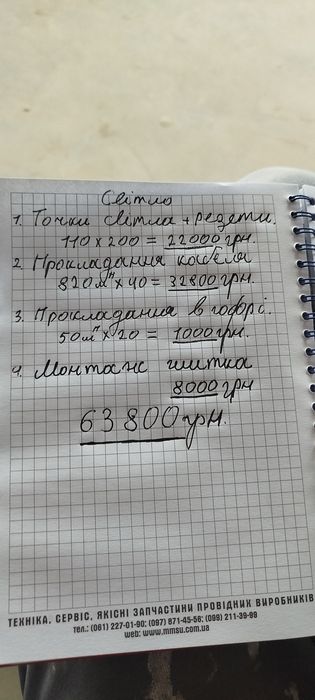 Світло
1. Точки світла + розети.
110 х 200 = 22000 грн.
2. Прокладання кабеля
820 м/п х 40 = 32800 грн.
3. Прокладання в гофрі.
50 м/п х 20 = 1000 грн.
4. Монтаж щитка
8000 грн
63800 грн.
ТЕХНІКА. СЕРВІС. ЯКІСНІ ЗАПЧАСТИНИ ПРОВІДНИХ ВИРОБНИКІВ
тел.: (061) 227-01-90; (097) 871-45-56; (099) 211-39-99
web: www.mmsu.com.ua